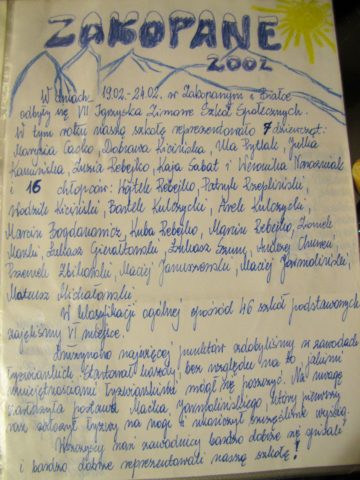 ZAKOPANE
2002
W dniach 19.02.-24.02. w Zakopanym i Białce
odbyły się VII Igrzyska Zimowe Szkół Społecznych.
W tym roku naszą szkołę reprezentowało 7 dziewcząt:
Marysia Cacko, Dobrawa Kicińska, Ula Rytlak, Julia
Kamińska, Zuzia Rebejko, Kaja Sabat i Weronika
i 16 chłopców: Wojtek Rebejko, Patryk
Włodzik Kiciński, Bartek Kulczycki, Arek Kulczycki,
Marcin Bogdanowicz, Kuba Rebejko, Marcin Rebejko,
Łukasz Gierałtowski, Łukasz Szumy, Andrzej
Przemek Maciej Januszewski, Maciej Jarmoliński,
Mateusz Michałowski.
W klasyfikacji ogólnej spośród 46 szkół podstawowych
zajęliśmy VI miejsce.
Drużynowo najwięcej punktów zdobyliśmy w zawodach
łyżwiarskich. Startował każdy, bez względu na to, jakimi
umiejętnościami łyżwiarskimi mógł się poszczyć. Na uwagę
zasłużyła postawa Maćka Jarmolińskiego, który pierwszy
raz założył łyżwy na nogi i ukończył szczęśliwie wyścig.
Wszyscy nasi zawodnicy bardzo dobrze się spisali
i bardzo dobrze reprezentowali naszą szkołę!